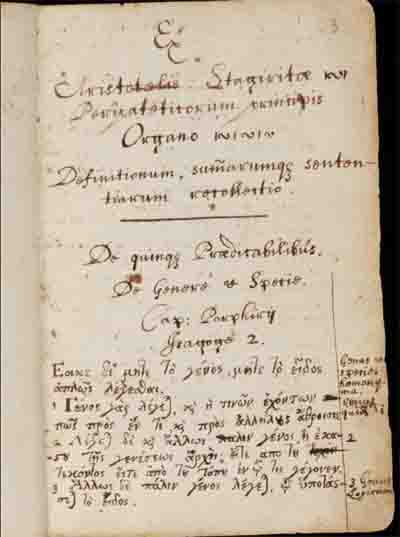 3
Ex
Aristotelis Stagiritæ
Peripateticorum principis
Organo
Definitionum, sum̄arumq; senten-
tiarum recollectio.
De quinq; Prædicabilibus.
De Genere et Specie.
Cap: Porphirij
Isagogé 2.
Ἔοικε δὲ μήτε τὸ γένος, μήτε τὸ εἶδος
ἁπλῶς λέγεσθαι.
1 Γένος γὰρ λέγε), ἡ τινῶν ἐχόντων
πως πρὸς ἕν τι, πρὸς ἀλλήλους ἄθροισις
2 Λέγε) δὲ ἄλλως γένος, ἡ ἑκά-
στου τῆς γενέσεως ἀρχὴ,
ἀπὸ τοῦ τόπου ἐν ᾧ τις γέγονεν.
3 Ἄλλως δὲ πάλιν γένος λέγε), ᾧ ὑποτάσ-
σε) τὸ εἶδος.
Genus
species
homony-
ma.
2
3 Genus